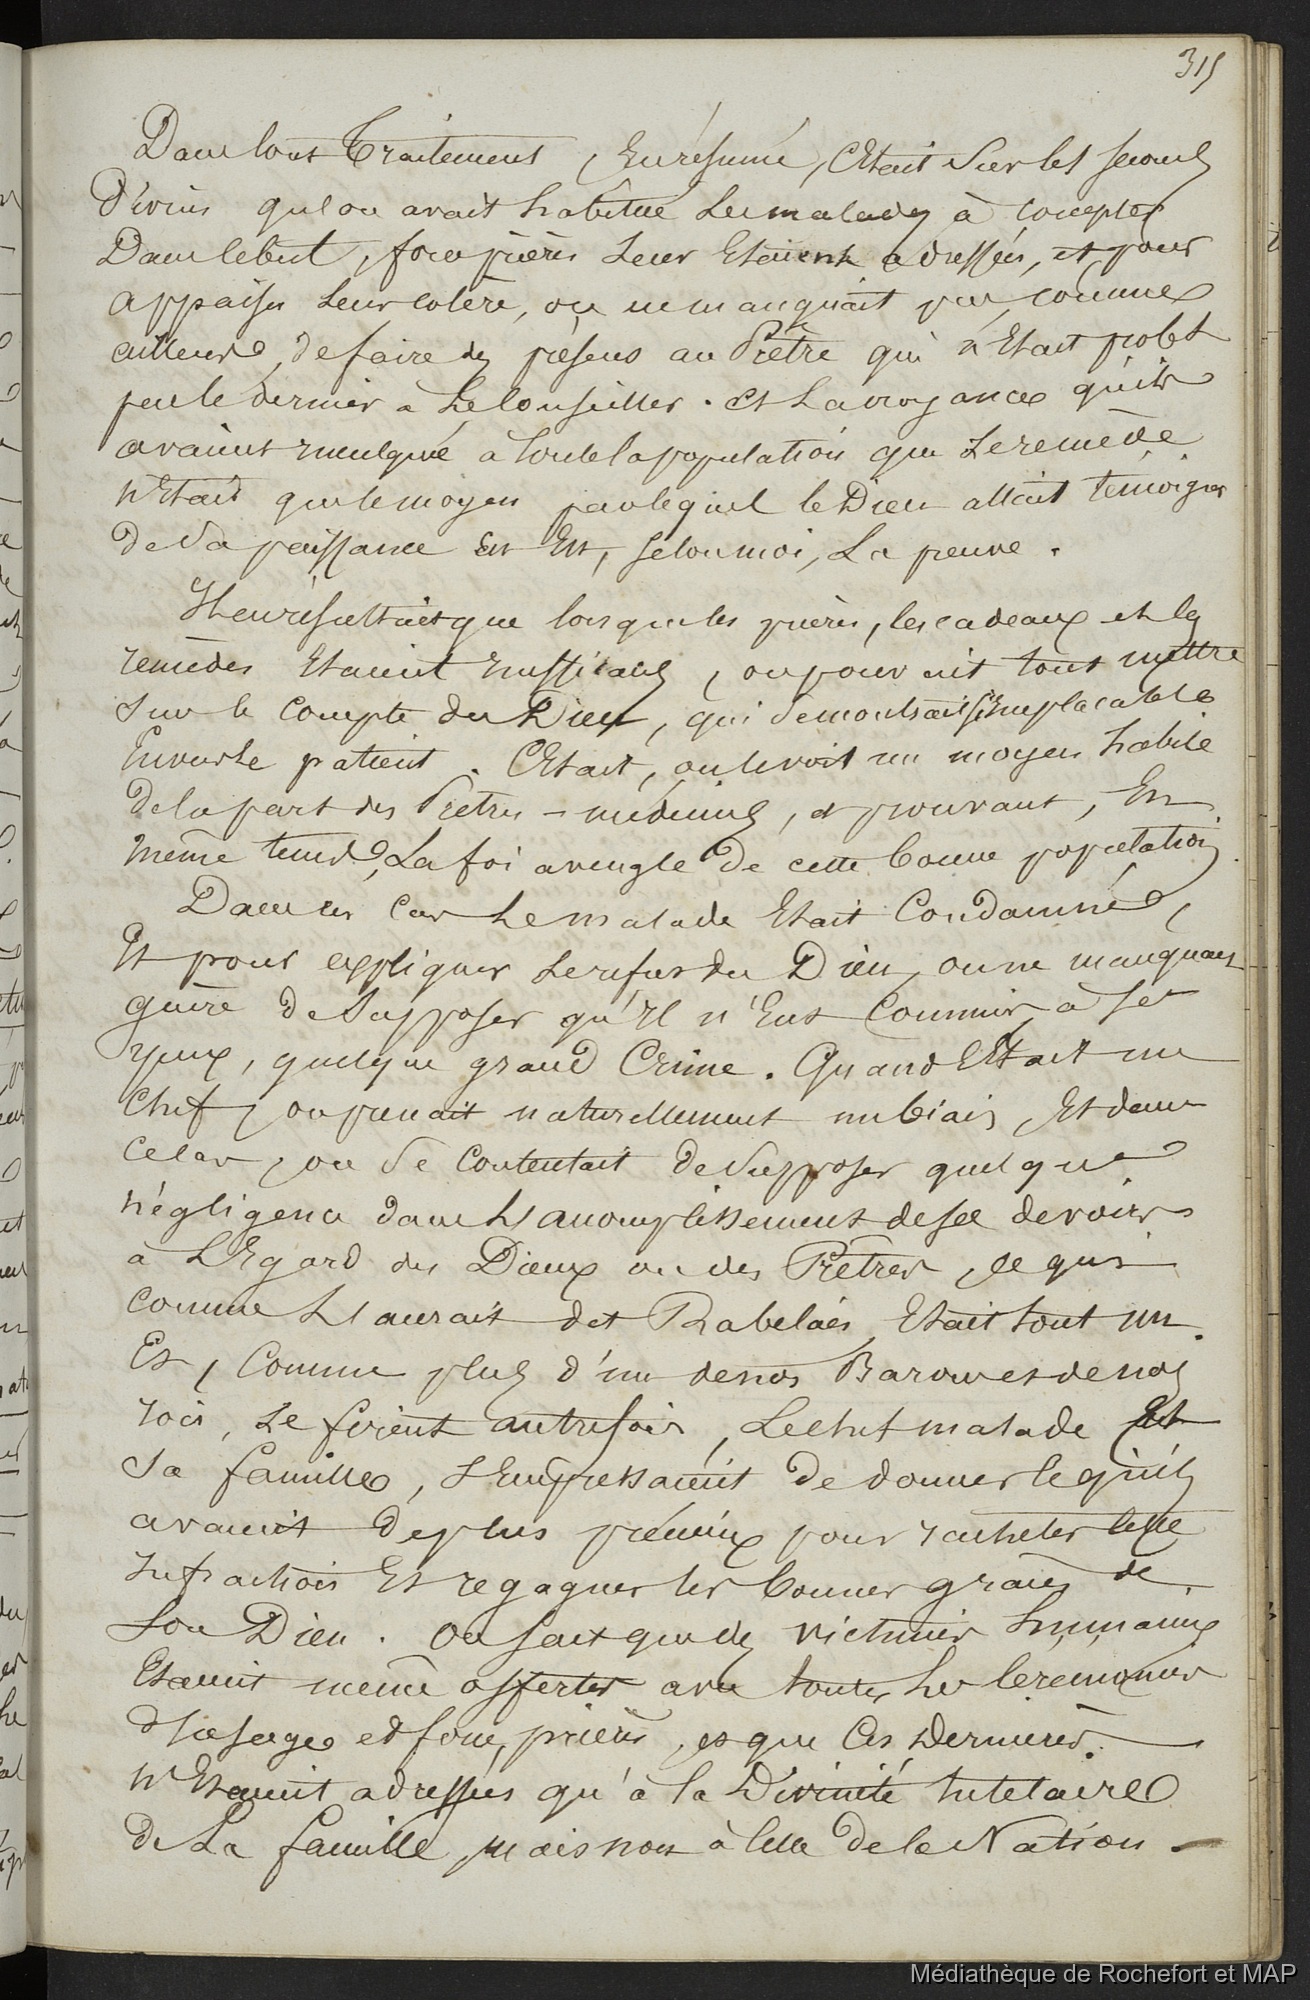 315
Dans tout Traitement, En résumé, C'Etait Sur les secours
Divins qu'on avait habitué Les malades à compter
Dans le but, force prières Leur Etaient adressées, et, pour
appaiser Leur colère, on ne manquait pas, comme
ailleurs, de faire des présens au Prêtre qui n'Etait probt
pas le dernier à Le Conseiller. Et La croyance qu'ils
avaient inculquée à toute la population que Le remède
n'Etait que le moyen par lequel le Dieu allait témoigner
de Sa puissance En Est, selon moi, La preuve.
Il en résultait que lorsque les prières, les cadeaux et les
remèdes Etaient insuffisans, on pouvait tout mettre
Sur le Compte du Dieu, qui Se montrait si Implacable
Envers Le patient. C'Etait, on le voit un moyen habile
de la part des Prêtres-médecins, et prouvant, En
même tems, La foi aveugle de cette bonne population.
Dans ces cas Le malade Etait Condamné,
Et pour expliquer Le refus du Dieu, on ne manquait
guère de Supposer qu'Il n'Eut Commis, à Ses
yeux, quelque grand Crime. Quand C'Etait un
Chef, on prenait naturellement un biais, Et dans
ce cas, on Se Contentait de Supposer quelque
négligence dans L'accomplissement de ses devoirs
à L'Egard des Dieux ou des Prêtres, ce qui
comme L'aurait dit Rabelais, Etait tout un.
Et, Comme plus d'un de nos Barons et de nos
rois, Le firent autrefois, Le chef malade Et
Sa famille, S'Empressaient de donner ce qu'ils
avaient de plus précieux pour racheter cette
Infraction Et regagner les bonnes graces de
Son Dieu. On sait que des victimes humaines
Etaient même offertes avec toutes Les Cérémonies
d'usage et force prières, et que Ces Dernières
n'Etaient adressées qu'à la Divinité tutelaire
de La famille, mais non à Celle de la Nation.
Médiathèque de Rochefort et MAP